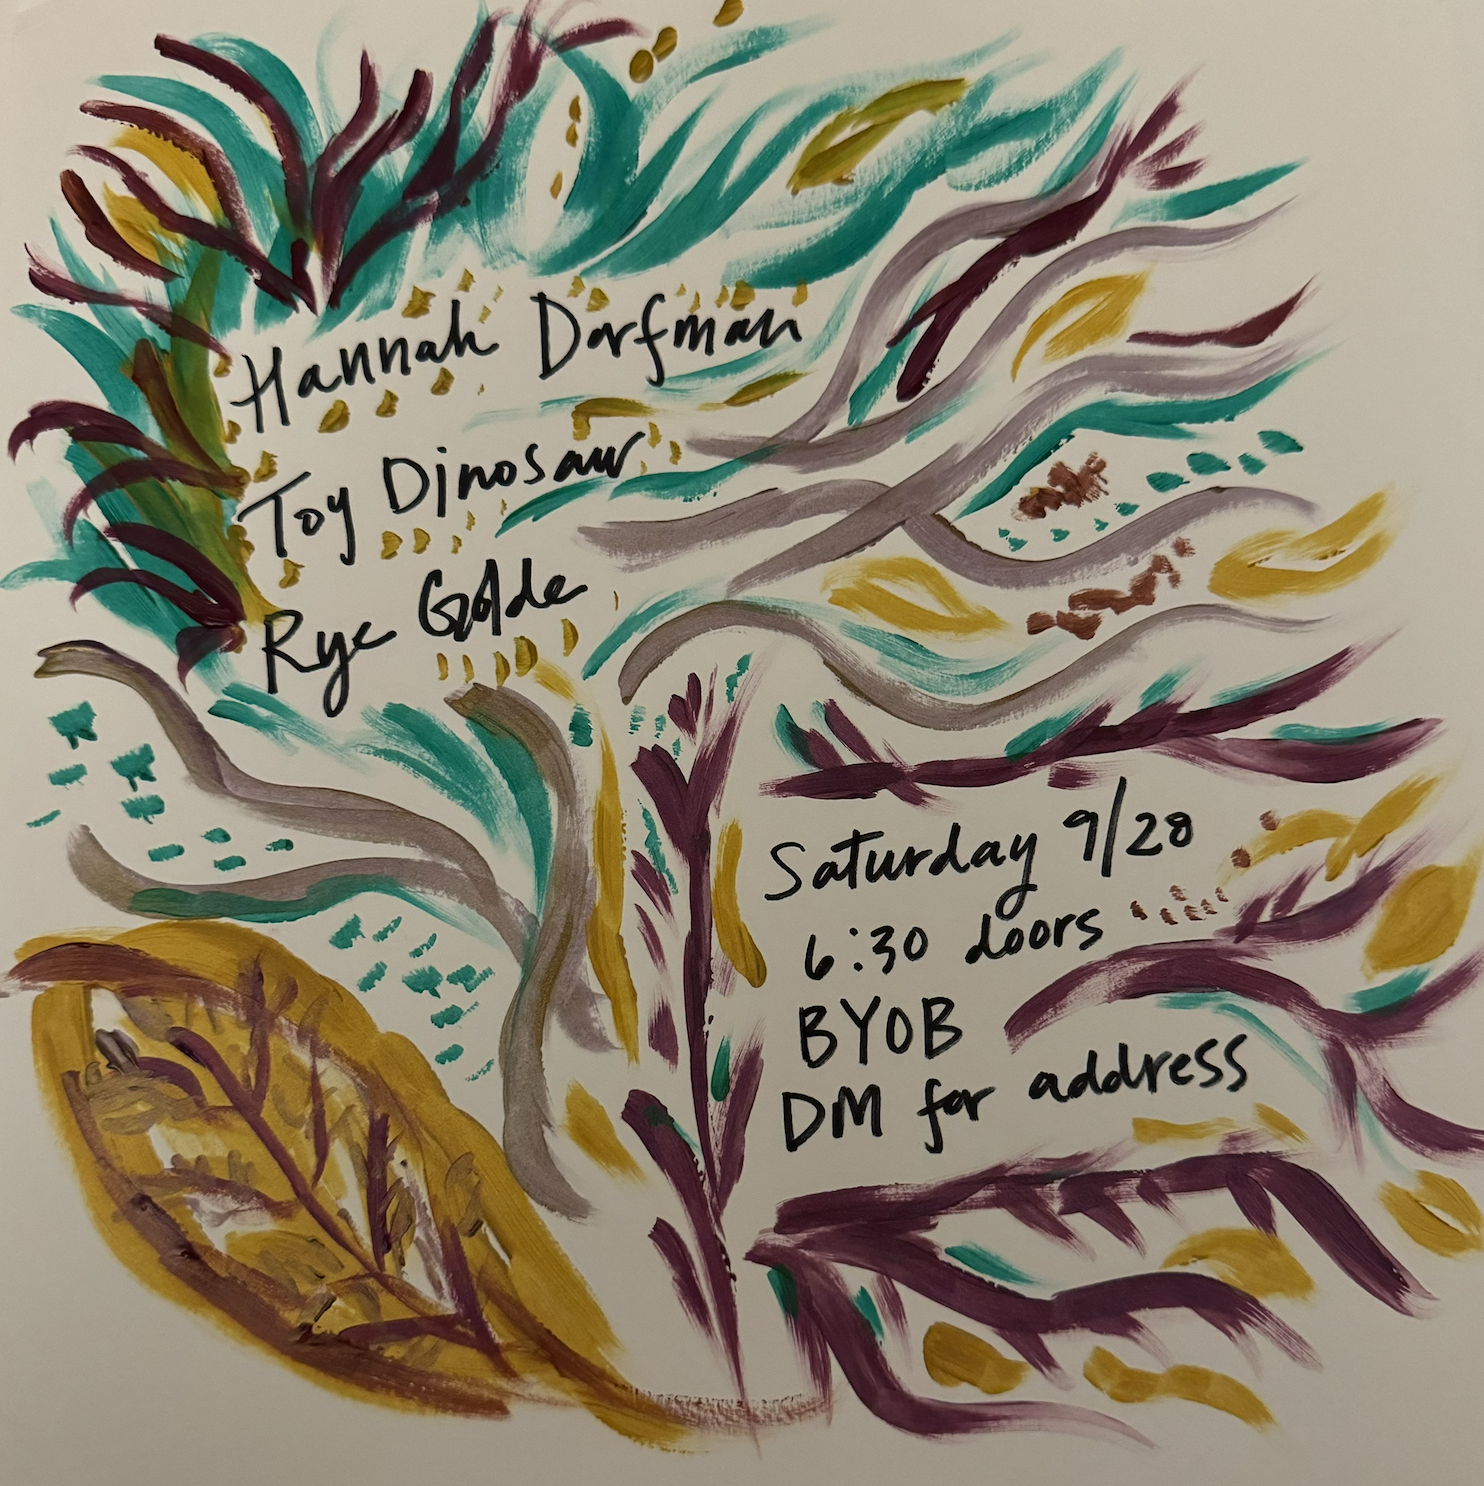 Hannah Dorfman
Toy Dinosaur
Rye Golde
Saturday 9/28
6:30 doors
BYOB
DM for address